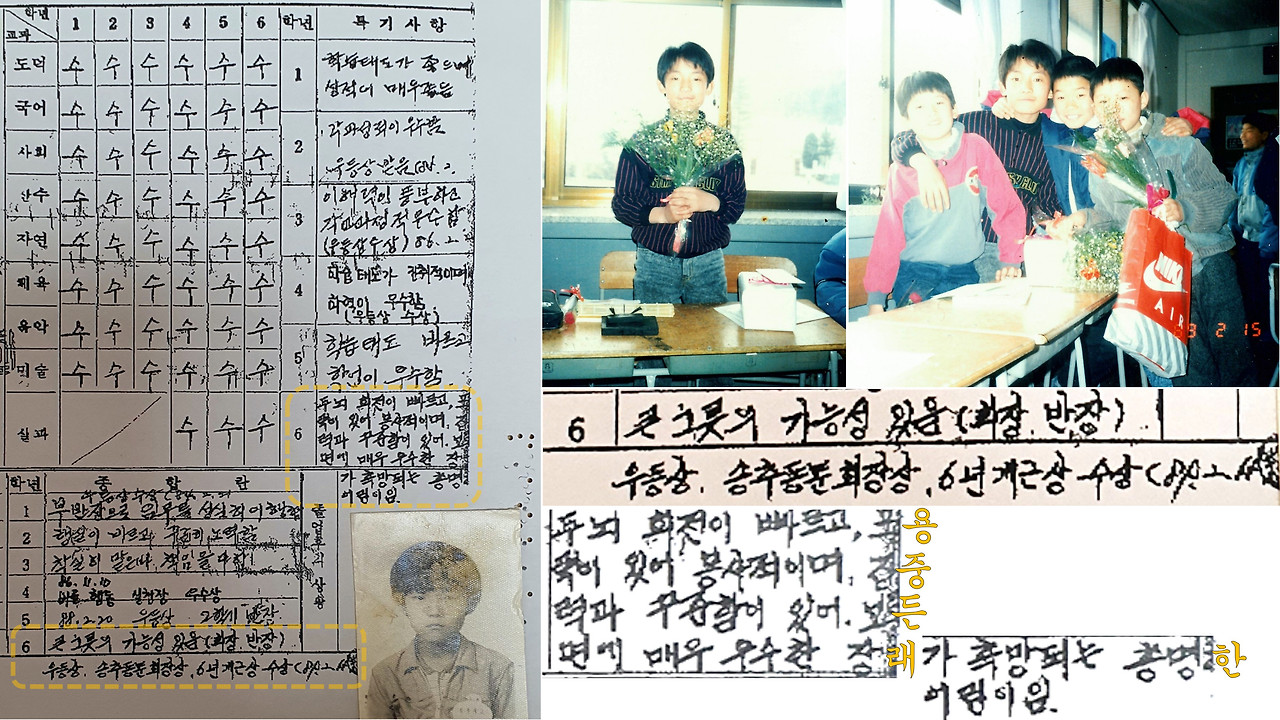 학년 1 2 3 4 5 6 학년 특기사항
교과
도덕 수 수 수 수 수 수
국어 수 수 수 수 수 수
사회 수 수 수 수 수 수
산수 수 수 수 수 수 수
자연 수 수 수 수 수 수
체육 수 수 수 수 수 수
음악 수 수 수 수 수 수
미술 수 수 수 수 수 수
실과 수 수 수
1 학습태도가 좋으며
성적이 매우좋음
2 각과성적이 우수함
우등상받음
3 이해력이 풍부하고
각과의성적우수함
(우등상수상) 86.2.
4 학습태도가 진취적이며
학력이 우수함
(우등상 수상)
5 학습태도 바르고
학력이 우수함
6 두뇌 회전이 빠르고, 포
력과 우수함이 있어. 모든
면에 매우 우수한 장
가 촉망되는 총명
어린이임.
학년 종합란
1 부반장으로 임무를 성실히 이행함
2 행실이 바르고 꾸준히 노력함
3 착실히 맡은바 책임을 다함
4 86.11.10
우수상
5 88.2.20 우등상 2학기 반장
6 큰그릇의 가능성 있음(회장, 반장)
우등상, 송추동문회장상, 6년개근상 수상(89.2.
NIKE
AIR
2 15
6 큰그릇의 가능성 있음(회장, 반장)
우등상, 송추동문회장상, 6년개근상 수상(89.2.
두뇌 회전이 빠르고, 포용
력이 있어 봉사적이며, 집중
력과 우수함이 있어. 모든
면에 매우 우수한 장래
가 촉망되는 총명한
어린이임.